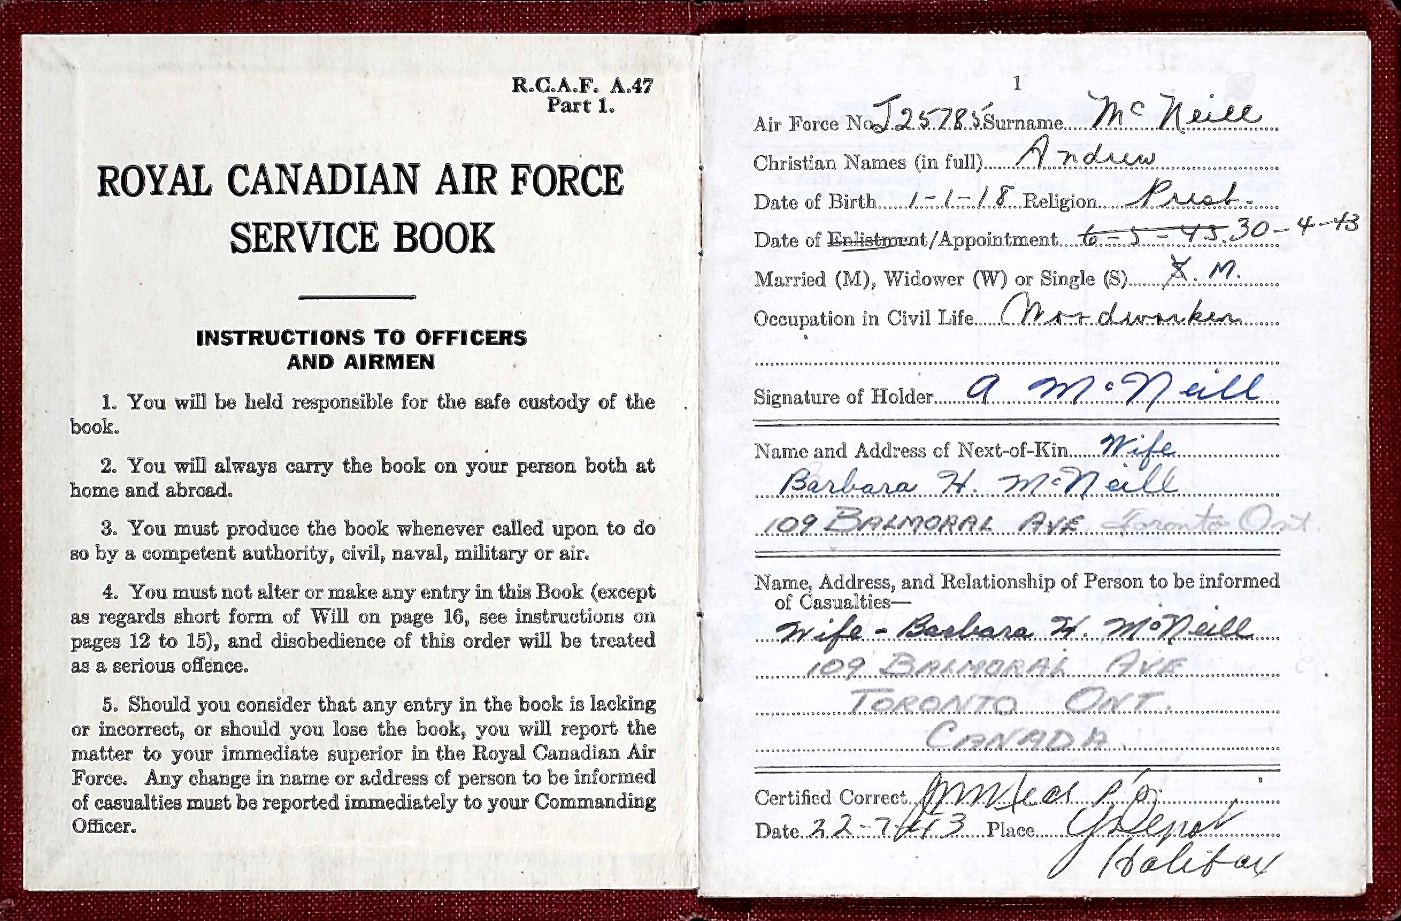 R.C.A.F. A.47
Part 1.
ROYAL CANADIAN AIR FORCE
SERVICE BOOK
INSTRUCTIONS TO OFFICERS
AND AIRMEN
1. You will be held responsible for the safe custody of the
book.
2. You will always carry the book on your person both at
home and abroad.
3. You must produce the book whenever called upon to do
so by a competent authority, civil, naval, military or air.
4. You must not alter or make any entry in this Book (except
as regards short form of Will on page 16, see instructions on
pages 12 to 15), and disobedience of this order will be treated
as a serious offence.
5. Should you consider that any entry in the book is lacking
or incorrect, or should you lose the book, you will report the
matter to your immediate superior in the Royal Canadian Air
Force. Any change in name or address of person to be informed
of casualties must be reported immediately to your Commanding
Officer.
1
Air Force No. J25785 Surname McNeill
Christian Names (in full) Andrew
Date of Birth 1-1-18 Religion Presb.
Date of Enlistment/Appointment 6-5-43. 30-4-43
Married (M), Widower (W) or Single (S) S. M.
Occupation in Civil Life Woodworker
Signature of Holder A McNeill
Name and Address of Next-of-Kin Wife
Barbara H. McNeill
109 BALMORAL AVE Toronto Ont
Name, Address, and Relationship of Person to be informed
of Casualties—
Wife - Barbara H. McNeill
109 BALMORAL AVE
TORONTO ONT.
CANADA
Certified Correct
Date 22-7-43 Place Y Depot
Halifax